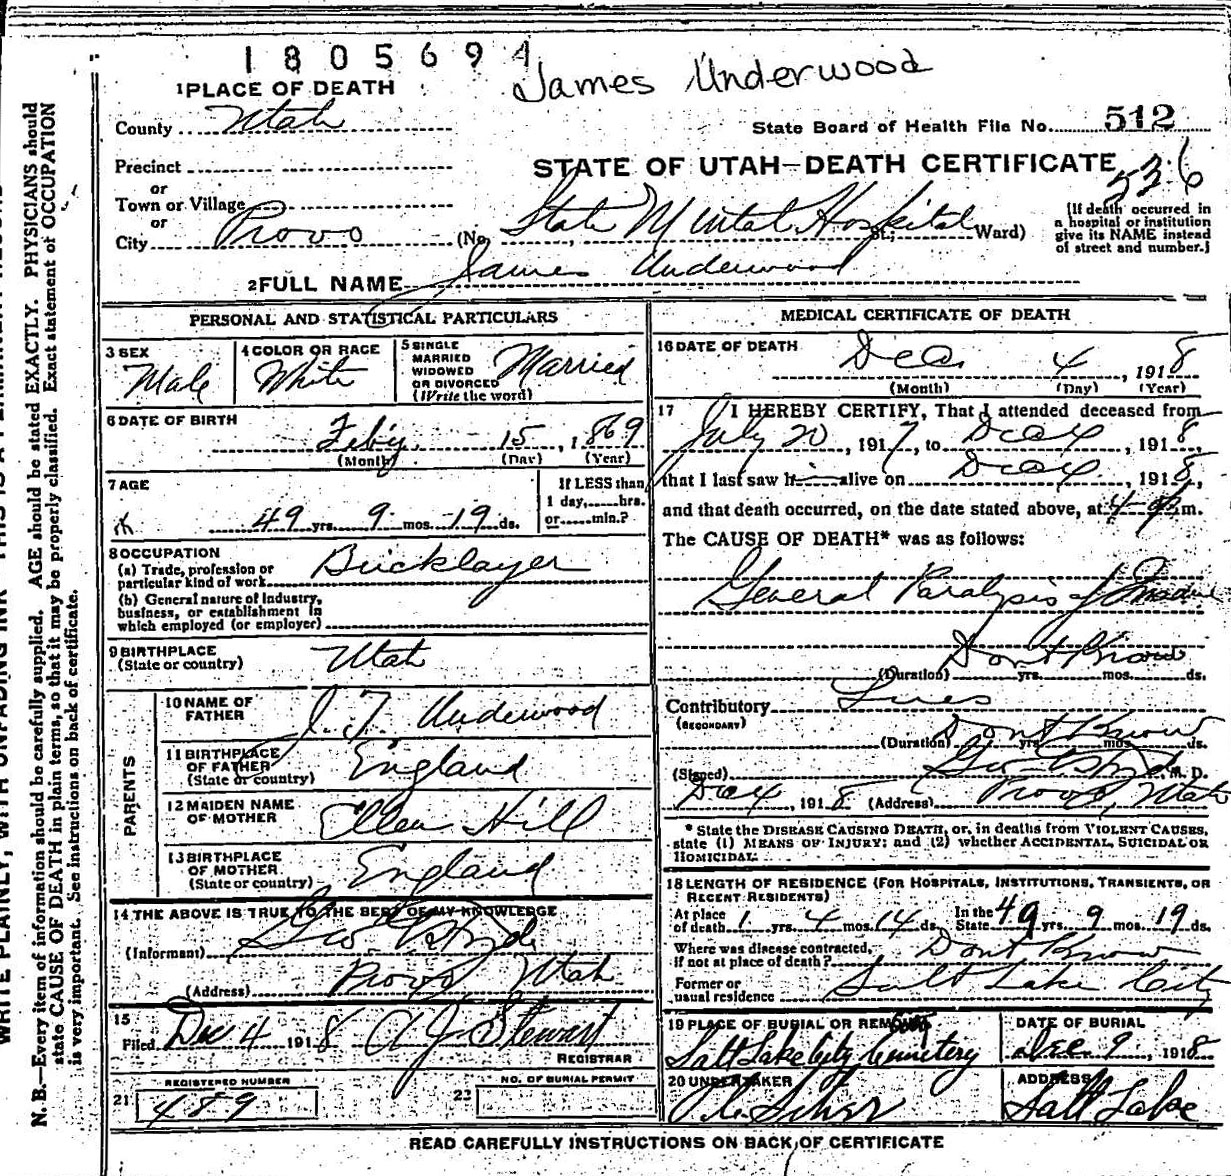 1805694
James Underwood
1 PLACE OF DEATH
County Utah
State Board of Health File No. 512
Precinct
STATE OF UTAH—DEATH CERTIFICATE
536
or
Town or Village
or
City Provo
(No. State Mental Hospital St.; Ward)
[If death occurred in
a hospital or institution
give its NAME instead
of street and number.]
2 FULL NAME James Underwood
PERSONAL AND STATISTICAL PARTICULARS
3 SEX
Male
4 COLOR OR RACE
White
5 SINGLE
MARRIED
WIDOWED
OR DIVORCED
(Write the word)
Married
6 DATE OF BIRTH
Feby 15, 1869
(Month) (Day) (Year)
7 AGE
49 yrs. 9 mos. 19 ds.
If LESS than
1 day,......hrs.
or......min.?
8 OCCUPATION
(a) Trade, profession or
particular kind of work
Bricklayer
(b) General nature of industry,
business, or establishment in
which employed (or employer)
9 BIRTHPLACE
(State or country)
Utah
PARENTS
10 NAME OF
FATHER
J. T. Underwood
11 BIRTHPLACE
OF FATHER
(State or country)
England
12 MAIDEN NAME
OF MOTHER
Ellen Hill
13 BIRTHPLACE
OF MOTHER
(State or country)
England
14 THE ABOVE IS TRUE TO THE BEST OF MY KNOWLEDGE
(Informant) Geo
(Address) Provo Utah
15
Filed Dec 4 1918 A J Stewart
REGISTRAR
REGISTERED NUMBER
21 489
NO. OF BURIAL PERMIT
22
MEDICAL CERTIFICATE OF DEATH
16 DATE OF DEATH
Dec. 4, 1918
(Month) (Day) (Year)
17 I HEREBY CERTIFY, That I attended deceased from
July 20, 1917, to Dec 4, 1918,
that I last saw h alive on Dec 4, 1918,
and that death occurred, on the date stated above, at 4 m.
The CAUSE OF DEATH* was as follows:
General Paralysis of Insane
Dont Know
(Duration) yrs. mos. ds.
Contributory Lues
(SECONDARY)
(Duration) Dont Know yrs. mos. ds.
(Signed) Geo M. D.
Dec 4, 1918 (Address) Provo, Utah
* State the DISEASE CAUSING DEATH, or, in deaths from VIOLENT CAUSES,
state (1) MEANS OF INJURY; and (2) whether ACCIDENTAL, SUICIDAL OR
HOMICIDAL.
18 LENGTH OF RESIDENCE (FOR HOSPITALS, INSTITUTIONS, TRANSIENTS, OR
RECENT RESIDENTS)
At place of death 1 yrs. 4 mos. 14 ds. In the State 49 yrs. 9 mos. 19 ds.
Where was disease contracted,
if not at place of death? Dont Know
Former or
usual residence Salt Lake City
19 PLACE OF BURIAL OR REMOVAL
Salt Lake City Cemetery
DATE OF BURIAL
Dec. 9, 1918
20 UNDERTAKER
ADDRESS
Salt Lake
READ CAREFULLY INSTRUCTIONS ON BACK OF CERTIFICATE
N. B.—Every item of information should be carefully supplied. AGE should be stated EXACTLY. PHYSICIANS should
state CAUSE OF DEATH in plain terms, so that it may be properly classified. Exact statement of OCCUPATION
is very important. See instructions on back of certificate.
WRITE PLAINLY, WITH UNFADING INK